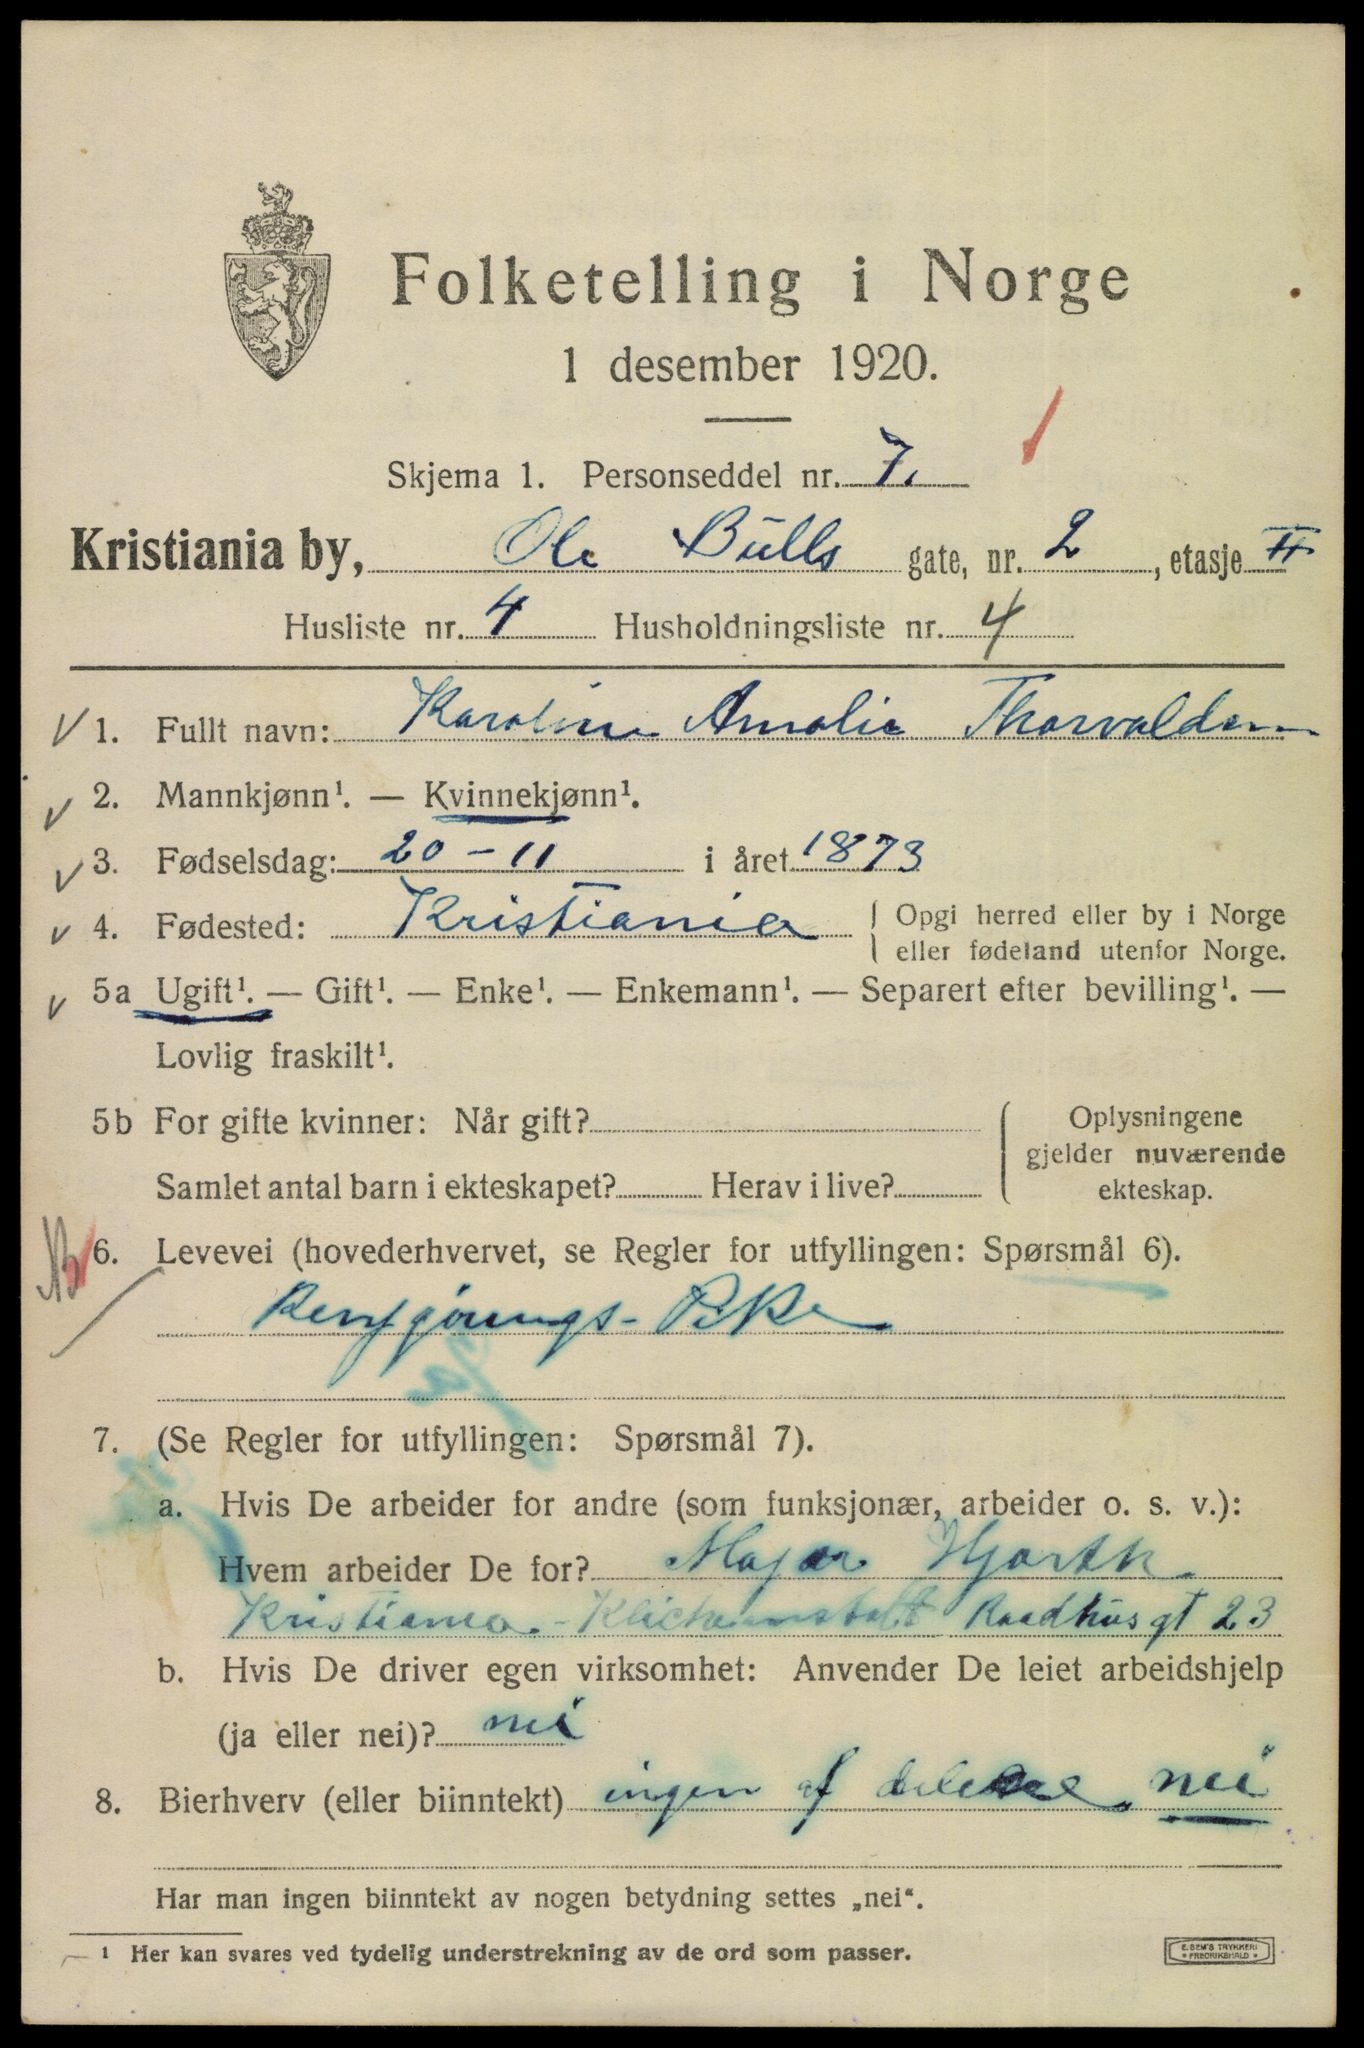 Folketelling i Norge
1 desember 1920.
Skjema 1. Personseddel nr. 7.
Kristiania by, Ole Bulls gate, nr. 2, etasje II
Husliste nr. 4 Husholdningsliste nr. 4
1. Fullt navn: Karoline Amalie Thorvaldsen
2. Mannkjønn¹. — Kvinnekjønn¹.
3. Fødselsdag: 20-11 i året 1873
4. Fødested: Kristiania { Opgi herred eller by i Norge
eller fødeland utenfor Norge.
5a Ugift¹. — Gift¹. — Enke¹. — Enkemann¹. — Separert efter bevilling¹. —
Lovlig fraskilt¹.
5b For gifte kvinner: Når gift? { Oplysningene
gjelder nuværende
Samlet antal barn i ekteskapet? Herav i live? ekteskap.
6. Levevei (hovederhvervet, se Regler for utfyllingen: Spørsmål 6).
Rengjørings-Pike
7. (Se Regler for utfyllingen: Spørsmål 7).
a. Hvis De arbeider for andre (som funksjonær, arbeider o. s. v.):
Hvem arbeider De for? Major Hjorth
Kristiania - Raadhusgt 23
b. Hvis De driver egen virksomhet: Anvender De leiet arbeidshjelp
(ja eller nei)? nei
8. Bierhverv (eller biinntekt) ingen af nei
Har man ingen biinntekt av nogen betydning settes „nei“.
¹ Her kan svares ved tydelig understrekning av de ord som passer.
E. SEM'S TRYKKERI
FREDRIKSHALD